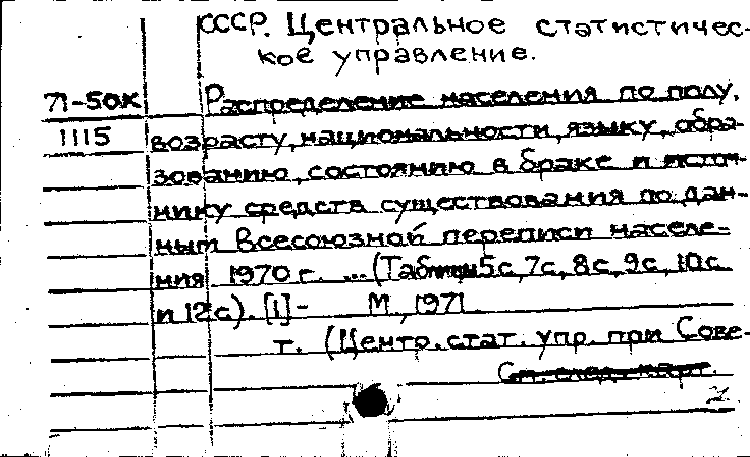 СССР. Центральное статистичес-
кое управление.
71-50К Распределение населения по полу,
1115 возрасту, национальности, языку, обра-
зованию, состоянию в браке и источ-
нику средств существования по дан-
ным Всесоюзной переписи населе-
ния 1970 г. ... (Таблицы 5с, 7с, 8с, 9с, 10с
и 12с). [1] - М., 1971.
т. (Центр. стат. упр. при Сове-
См. след. карт.
2